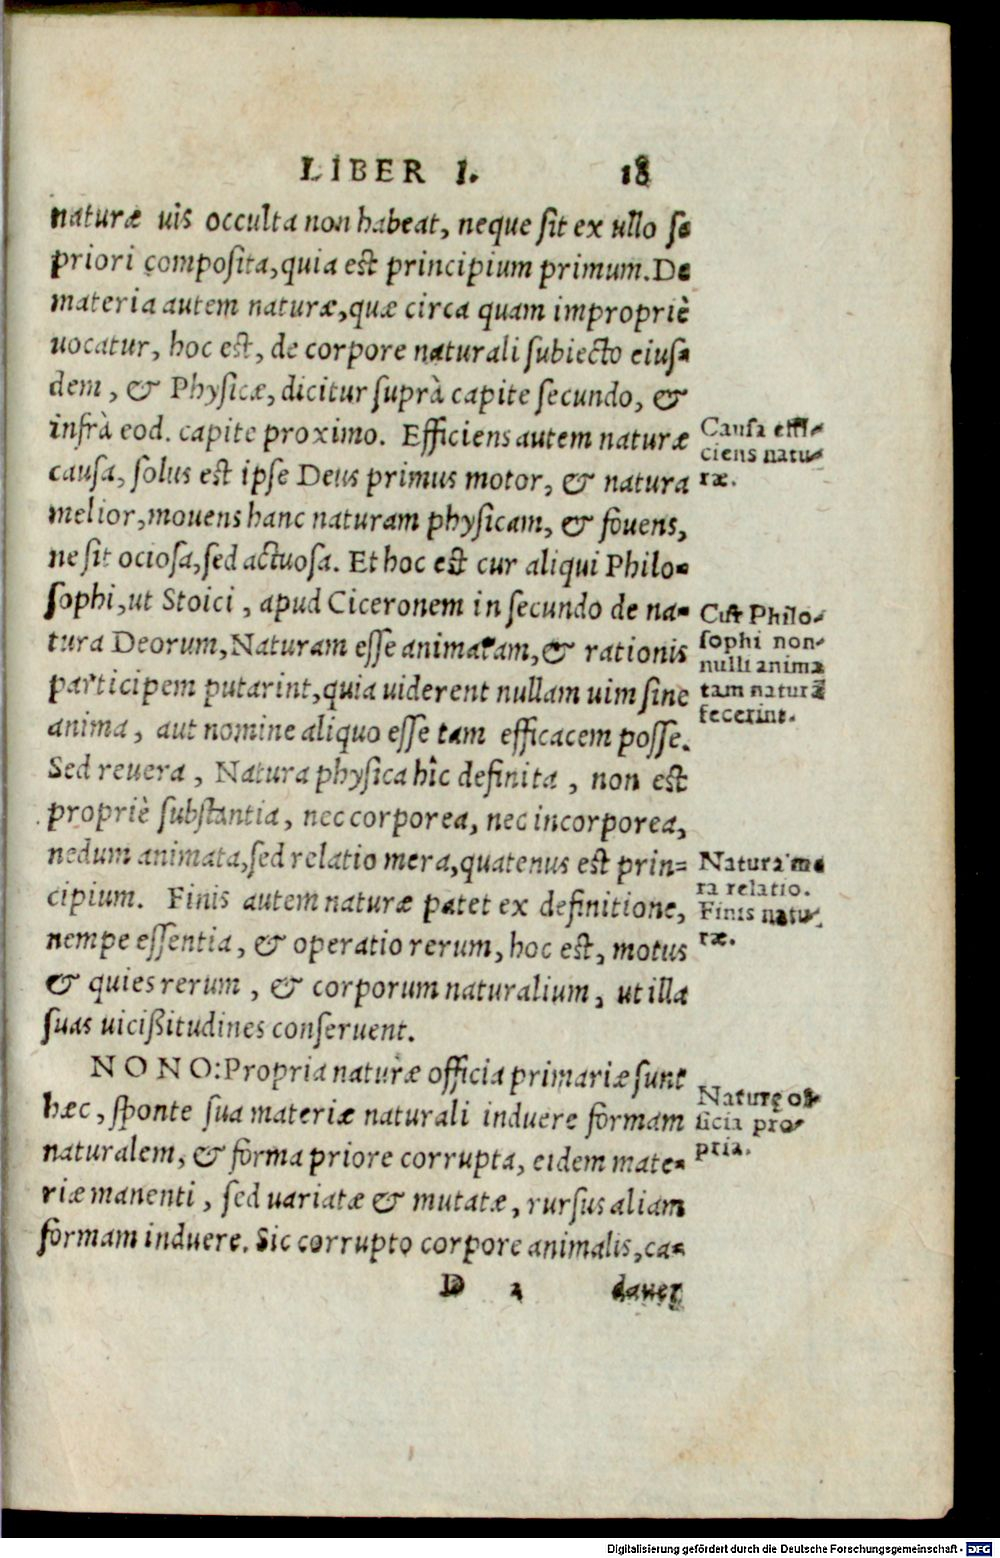 LIBER I. 18
naturæ uis occulta non habeat, neque ſit ex ullo ſe
priori compoſita, quia eſt principium primum. De
materia autem naturæ, quæ circa quam impropriè
uocatur, hoc eſt, de corpore naturali ſubiecto eiuſ-
dem, & Phyſicæ, dicitur ſuprà capite ſecundo, &
infrà eod. capite proximo. Efficiens autem naturæ
cauſa, ſolus eſt ipſe Deus primus motor, & natura
melior, mouens hanc naturam phyſicam, & fouens,
ne ſit ocioſa, ſed actuoſa. Et hoc eſt cur aliqui Philo-
ſophi, ut Stoici, apud Ciceronem in ſecundo de na-
tura Deorum, Naturam eſſe animatam, & rationis
participem putarint, quia uiderent nullam uim ſine
anima, aut nomine aliquo eſſe tam efficacem poſſe.
Sed reuera, Natura phyſica hîc definita, non eſt
propriè ſubſtantia, nec corporea, nec incorporea,
nedum animata, ſed relatio mera, quatenus eſt prin-
cipium. Finis autem naturæ patet ex definitione,
nempe eſſentia, & operatio rerum, hoc eſt, motus
& quies rerum, & corporum naturalium, ut illa
ſuas uiciſſitudines conſeruent.
NONO: Propria naturæ officia primariæ ſunt
hæc, ſponte ſua materiæ naturali induere formam
naturalem, & forma priore corrupta, eidem mate-
riæ manenti, ſed uariatæ & mutatæ, rurſus aliam
formam induere. Sic corrupto corpore animalis, ca-
D 2 dauer
Cauſa effi-
ciens natu-
ræ.
Cur Philo-
ſophi non-
nulli anima
tam naturã
fecerint.
Natura me
ra relatio.
Finis natu-
ræ.
Naturę of-
ficia pro-
pria.
Digitalisierung gefördert durch die Deutsche Forschungsgemeinschaft - DFG